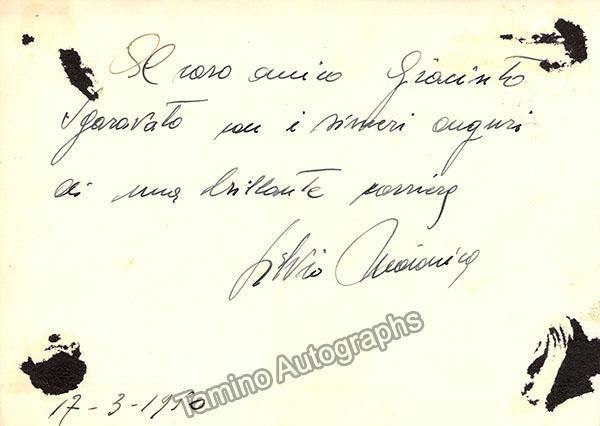 Al caro amico Giacinto
Sgaravato con i sinceri auguri
di una brillante carriera
Silvio Maionica
17-3-1950
Tamino Autographs